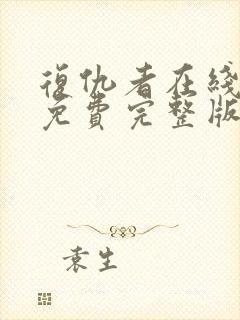 復仇者在綫
免費完整版
袁生